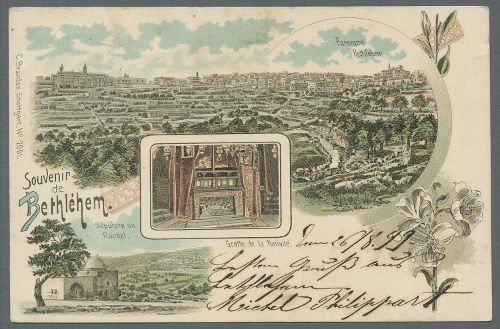 Panorama
Bethléhem.
C. Brandes, Stuttgart, No 2081.
Souvenir
de
Bethléhem.
Sépulcre de
Rachel.
Grotte de la Nativité.
26/8.99
Besten Gruß aus
Bethlehem
Michel Philippart